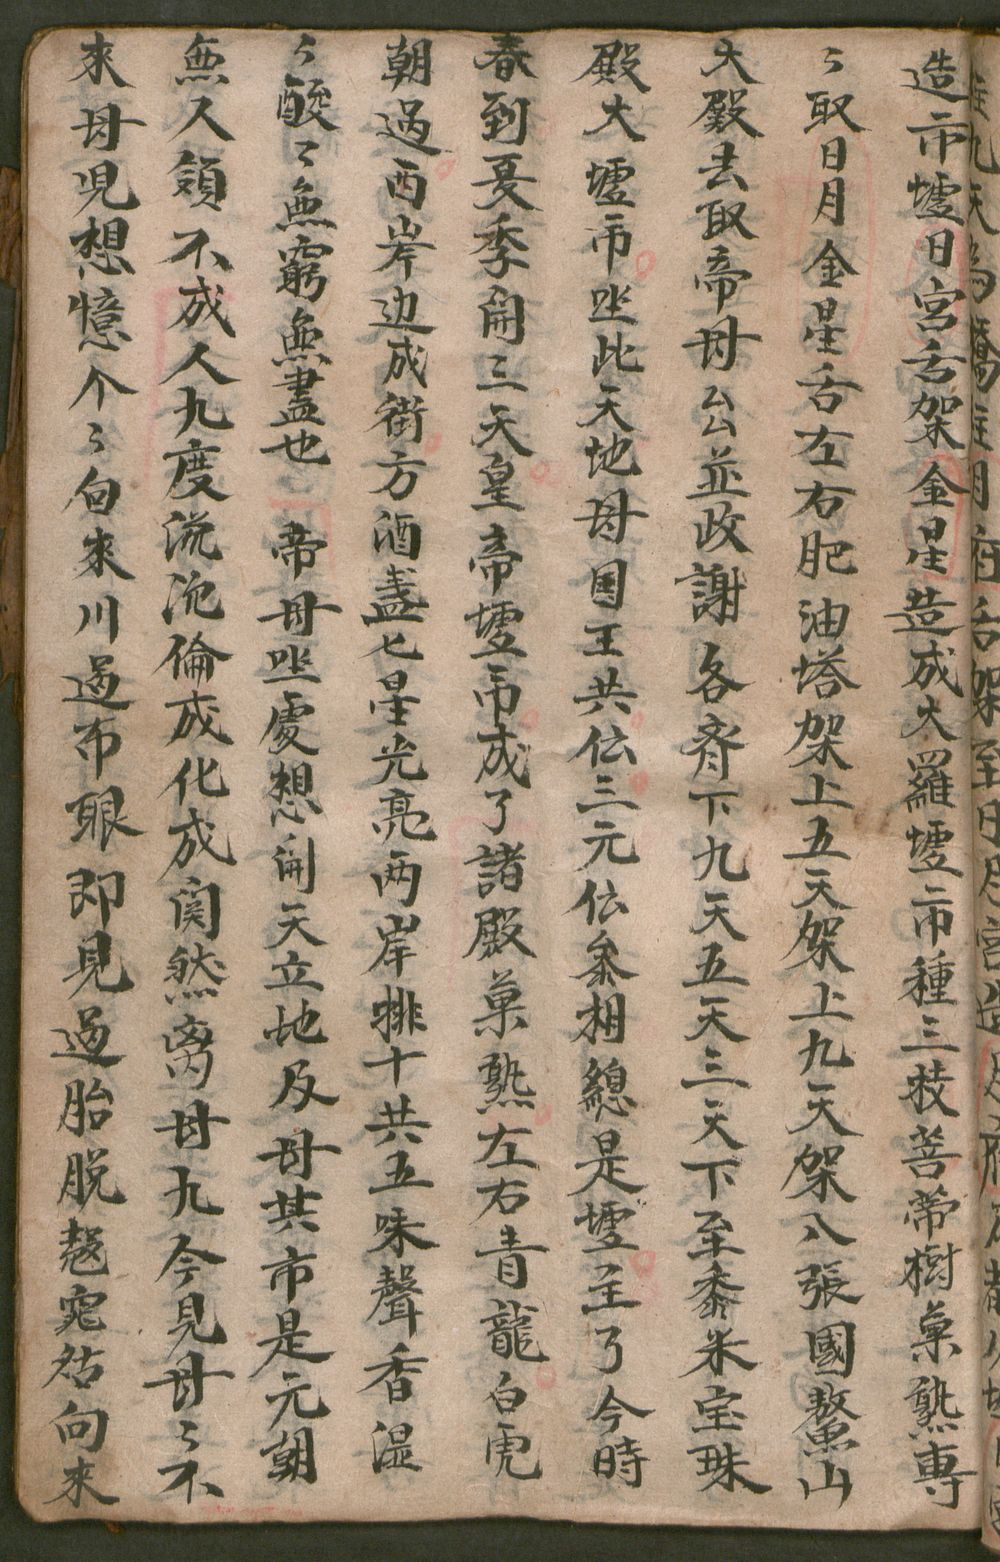 造市墟日宮舌架金星造成大羅墟市種三枝菩帝樹菓熟專
〻取日月金星舌左右肥油塔架上五天架上九天架八張國鰲山
大殿去取帝母公並政謝各齊下九天五天三天下至黍米宝珠
殿大墟市坐此天地母国王共伝三元伝叅相總是墟主了今時
春到夏季開三天皇帝墟市成了諸殿菓熟左右青龍白虎
朝過西岸边成街方酒盞七星光亮两岸排十共五味聲香湿
〻酸〻無窮無盡也帝母坐處想開天立地及母其市是元朝
無人領不成人九度沉倫成化成関然离母九今見母〻不
來母児想憶个〻自來川過布眼即見過胎脱向來